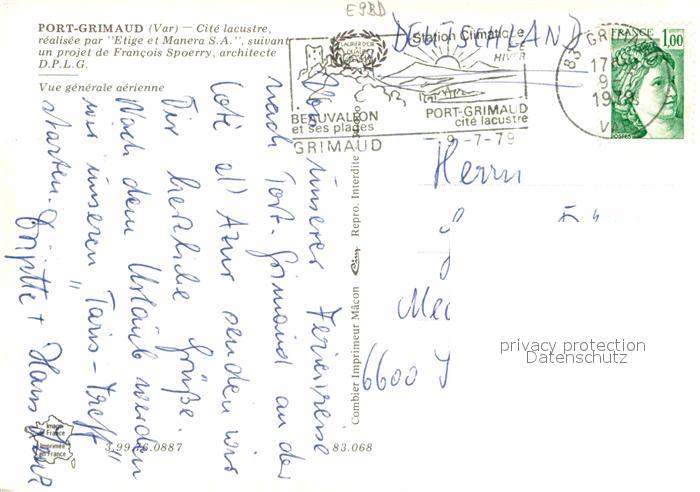 PORT-GRIMAUD (Var) — Cité lacustre,
réalisée par "Etige et Manera S.A.", suivant
un projet de François Spoerry, architecte
D.P.L.G.
Vue générale aérienne
E9BD
(DEUTSCHLAND)
Station Climatique
HIVER
BEAUVALLON
et ses plages
PORT-GRIMAUD
cité lacustre
GRIMAUD
9-7-79
83 GRI
17H
9-
1979
VA
FRANCE
1,00
POSTES
Von unserer Ferienreise
nach Port-Grimaud an der
Côte d'Azur senden wir
Dir herzliche Grüße.
Nach dem Urlaub werden
wir unseren "Tanis-Treff"
starten. Brigitte + Hans
Combier Imprimeur Mâcon Cim Repro. Interdite
Herrn
6600
privacy protection
Datenschutz
Image
de France
Imprimée
en France
3.99.76.0887
83.068